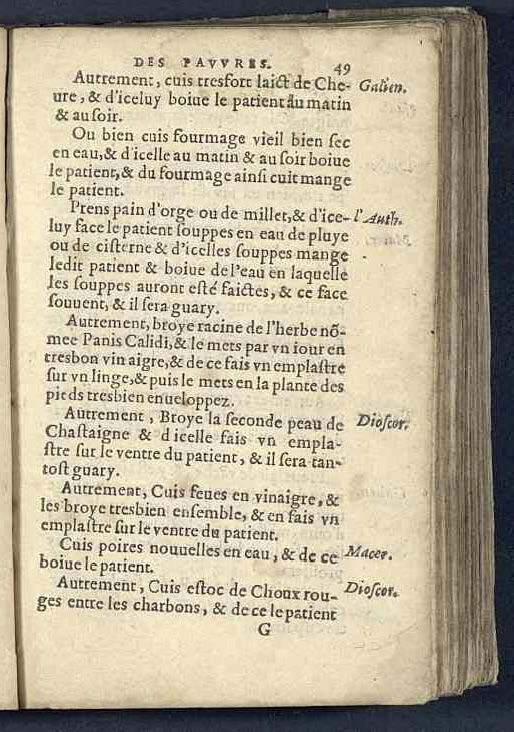 DES PAVVRES. 49
Autrement, cuis tresfort laict de Che- Galien.
ure, & d'iceluy boiue le patient au matin
& au ſoir.
Ou bien cuis fourmage vieil bien ſec
en eau, & d'icelle au matin & au ſoir boiue
le patient, & du fourmage ainſi cuit mange
le patient.
Prens pain d'orge ou de millet, & d'ice- l'Auth.
luy face le patient ſouppes en eau de pluye
ou de ciſterne & d'icelles ſouppes mange
ledit patient & boiue de l'eau en laquelle
les ſouppes auront eſté faictes, & ce face
ſouuent, & il ſera guary.
Autrement, broye racine de l'herbe nõ-
mee Panis Calidi, & le mets par vn iour en
tresbon vin aigre, & de ce fais vn emplaſtre
ſur vn linge, & puis le mets en la plante des
pieds tresbien enueloppez.
Autrement, Broye la ſeconde peau de Dioſcor.
Chaſtaigne & d'icelle fais vn empla-
ſtre ſur le ventre du patient, & il ſera tan-
toſt guary.
Autrement, Cuis feues en vinaigre, &
les broye tresbien enſemble, & en fais vn
emplaſtre ſur le ventre du patient.
Cuis poires nouuelles en eau, & de ce Macer.
boiue le patient.
Autrement, Cuis eſtoc de Choux rou- Dioſcor.
ges entre les charbons, & de ce le patient
G